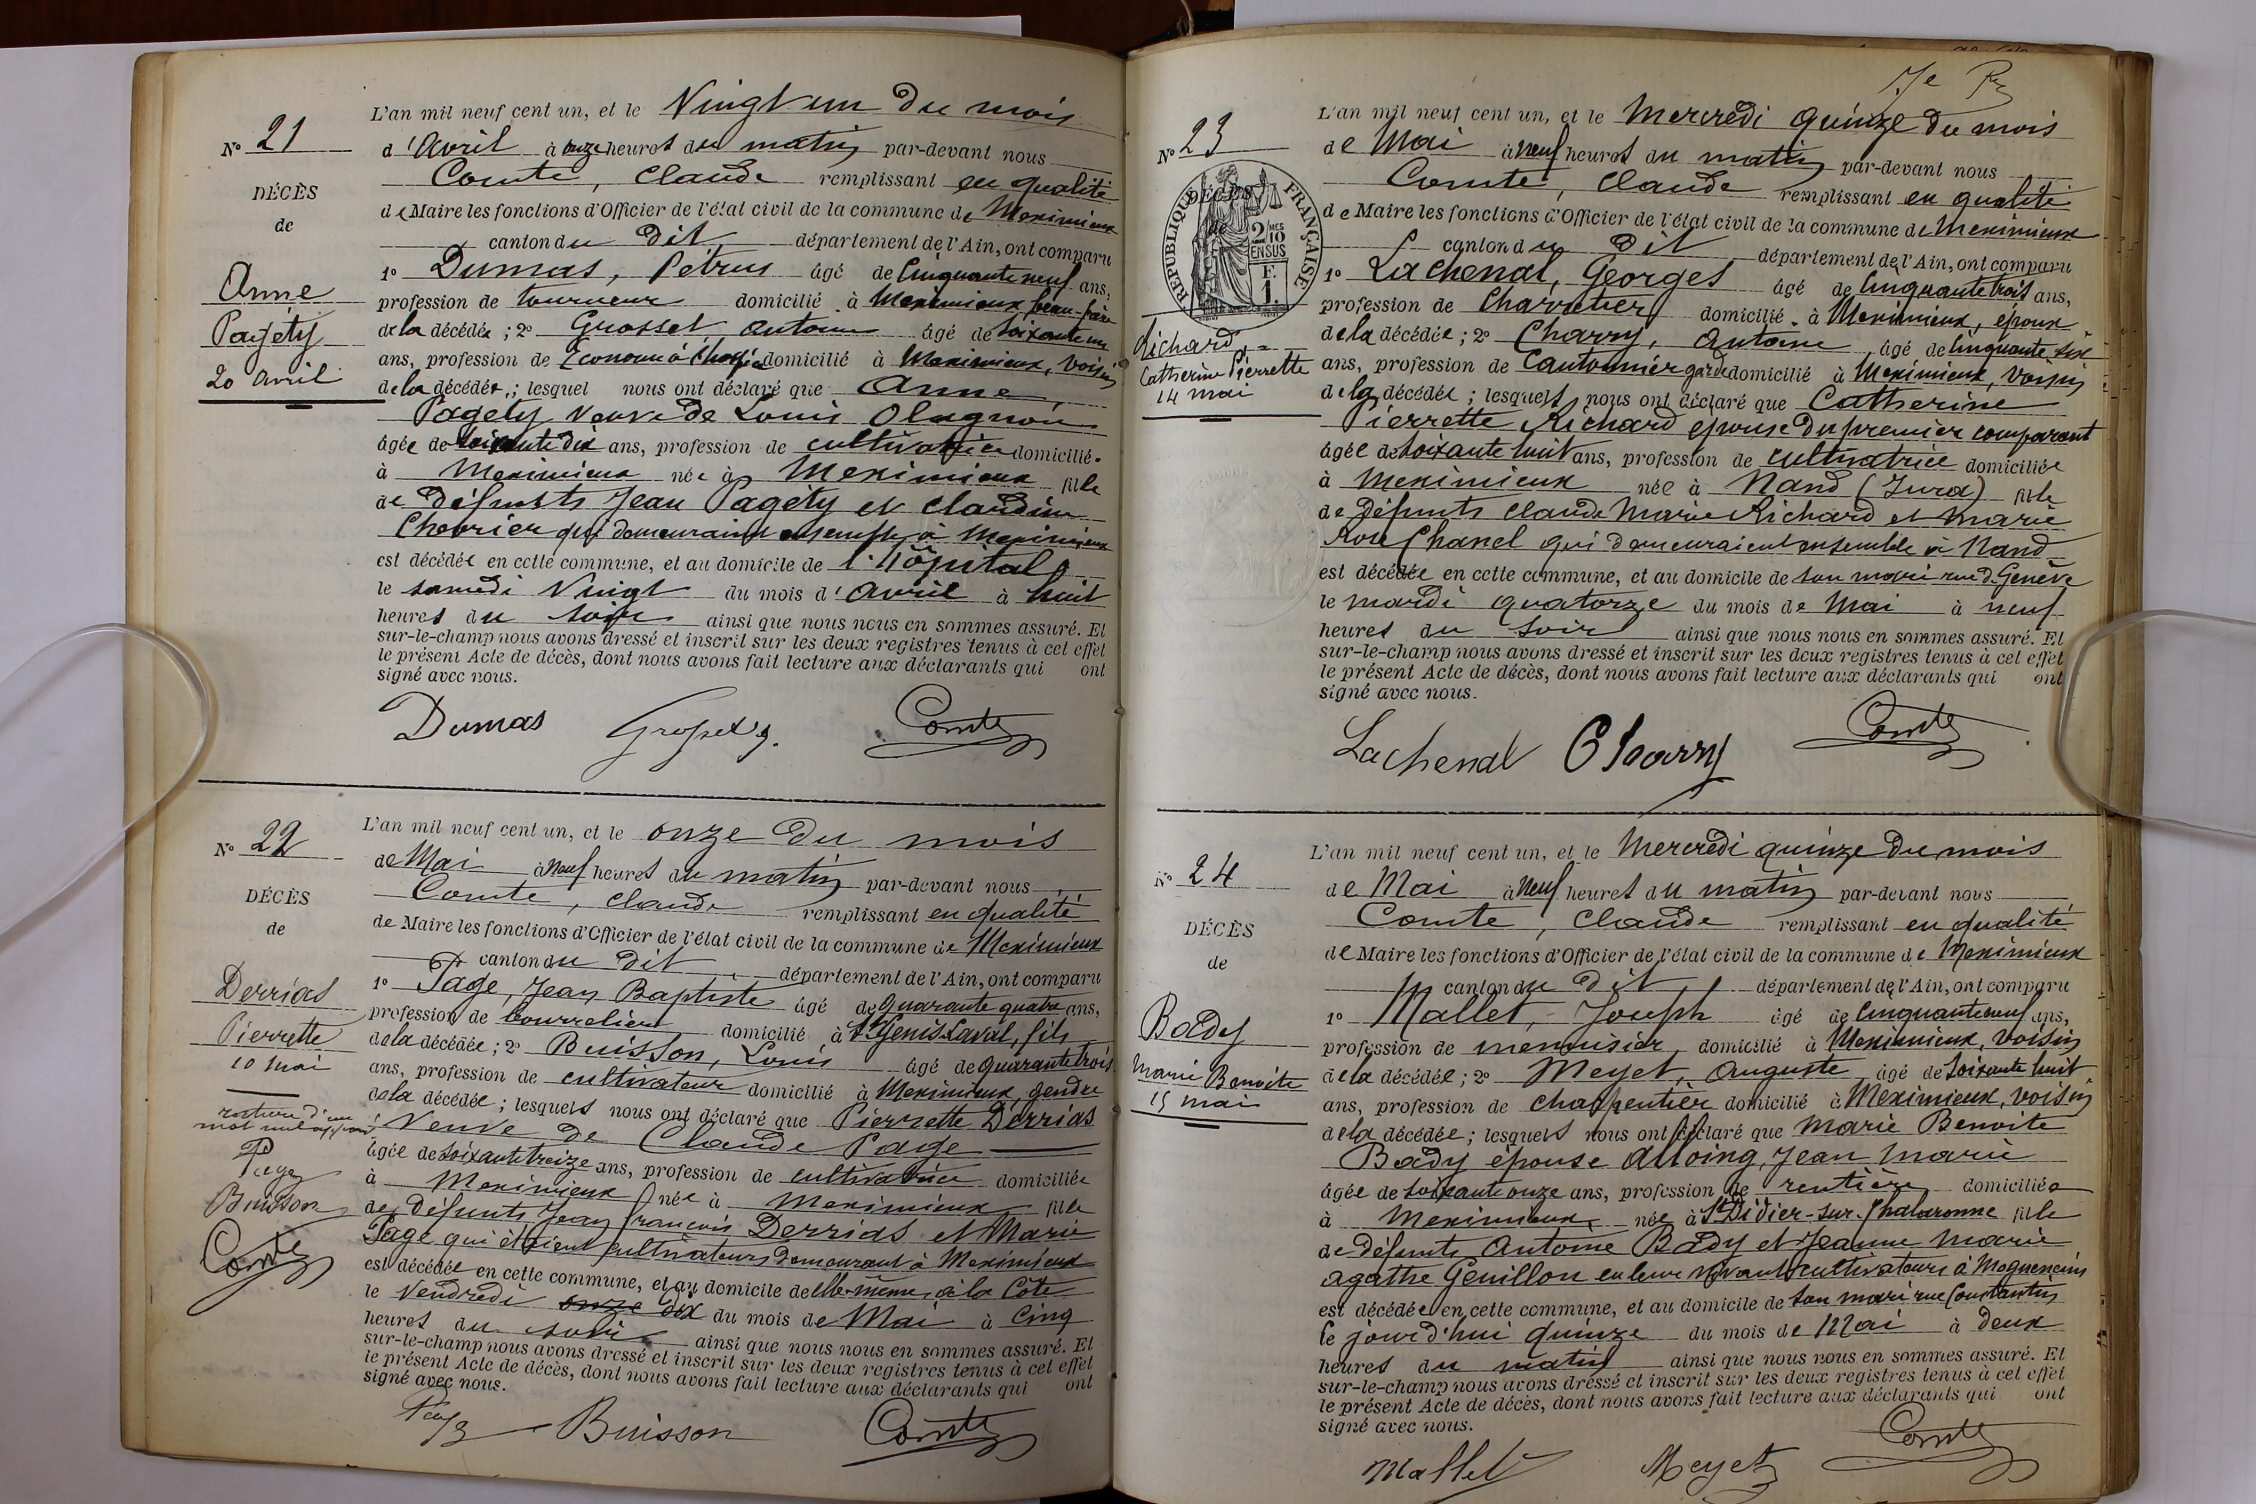 N° 21
DÉCÈS
de
Anne
Pagéty
20 avril
L'an mil neuf cent un, et le Vingt un du mois
d'Avril à onze heures du matin par-devant nous
Comte, Claude remplissant en qualité
de Maire les fonctions d'Officier de l'état civil de la commune de Meximieux
canton du dit, département de l'Ain, ont comparu
1° Dumas, Pétrus âgé de Cinquante neuf ans,
profession de tourneur domicilié à Meximieux, beau-frère
de la décédée; 2° Grosset, Antoine âgé de soixante un
ans, profession de domicilié à Meximieux, voisin
de la décédée; lesquel nous ont déclaré que Anne
Pagéty Veuve de Louis Olagnon
âgée de soixante dix ans, profession de cultivatrice domicilié
à Meximieux née à Meximieux fille
de défunts Jean Pagéty et Claudine
Chevrier qui demeuraient ensemble à Meximieux
est décédée en cette commune, et au domicile de l'Hôpital
le samedi Vingt du mois d'avril à huit
heures du soir ainsi que nous nous en sommes assuré. Et
sur-le-champ nous avons dressé et inscrit sur les deux registres tenus à cet effet
le présent Acte de décès, dont nous avons fait lecture aux déclarants qui ont
signé avec nous.
Dumas Grosset Comte
N° 22
DÉCÈS
de
Derrias
Pierrette
10 mai
rature d'un
mot nul
Page
Buisson
Comte
L'an mil neuf cent un, et le onze du mois
de Mai à neuf heures du matin par-devant nous
Comte, Claude remplissant en qualité
de Maire les fonctions d'Officier de l'état civil de la commune de Meximieux
canton du dit, département de l'Ain, ont comparu
1° Page, Jean Baptiste âgé de quarante quatre ans,
profession de bourrelier domicilié à St Genis Laval, fils
de la décédée; 2° Buisson, Louis âgé de quarante trois
ans, profession de cultivateur domicilié à Meximieux, gendre
de la décédée; lesquels nous ont déclaré que Pierrette Derrias
Veuve de Claude Page
âgée de soixante treize ans, profession de cultivatrice domiciliée
à Meximieux née à Meximieux fille
de défunts Jean François Derrias et Marie
Page qui étaient cultivateurs demeurant à Meximieux
est décédée en cette commune, et au domicile de elle-même, à la Côte
le Vendredi onze dix du mois de Mai à Cinq
heures du soir ainsi que nous nous en sommes assuré. Et
sur-le-champ nous avons dressé et inscrit sur les deux registres tenus à cet effet
le présent Acte de décès, dont nous avons fait lecture aux déclarants qui ont
signé avec nous.
Page Buisson Comte
7e
N° 23
DÉCÈS
de
RÉPUBLIQUE FRANÇAISE
2 MES
10
EN SUS
F.
1.
Richard,
Catherine Pierrette
14 mai
L'an mil neuf cent un, et le Mercredi quinze du mois
de Mai à neuf heures du matin par-devant nous
Comte, Claude remplissant en qualité
de Maire les fonctions d'Officier de l'état civil de la commune de Meximieux
canton du dit département de l'Ain, ont comparu
1° Lachenal, Georges âgé de Cinquante trois ans,
profession de Charretier domicilié à Meximieux, époux
de la décédée; 2° Charry, Antoine âgé de Cinquante six
ans, profession de Cantonnier garde domicilié à Meximieux, voisin
de la décédée; lesquels nous ont déclaré que Catherine
Pierrette Richard épouse du premier comparant
âgée de soixante huit ans, profession de cultivatrice domiciliée
à Meximieux née à Nand (Jura) fille
de défunts Claude Marie Richard et Marie
Rose Chanel qui demeuraient ensemble à Nand
est décédée en cette commune, et au domicile de son mari rue de Genève
le mardi quatorze du mois de Mai à neuf
heures du soir ainsi que nous nous en sommes assuré. Et
sur-le-champ nous avons dressé et inscrit sur les deux registres tenus à cet effet
le présent Acte de décès, dont nous avons fait lecture aux déclarants qui ont
signé avec nous.
Lachenal Charry Comte
N° 24
DÉCÈS
de
Bady
Marie Benoite
15 mai
L'an mil neuf cent un, et le Mercredi quinze du mois
de Mai à neuf heures du matin par-devant nous
Comte, Claude remplissant en qualité
de Maire les fonctions d'Officier de l'état civil de la commune de Meximieux
canton du dit, département de l'Ain, ont comparu
1° Mallet, Joseph âgé de Cinquante neuf ans,
profession de menuisier domicilié à Meximieux, voisin
de la décédée; 2° Meyet, Auguste âgé de soixante huit
ans, profession de charpentier domicilié à Meximieux, voisin
de la décédée; lesquels nous ont déclaré que Marie Benoite
Bady épouse Alloing, Jean Marie
âgée de soixante onze ans, profession de rentière domiciliée
à Meximieux née à St Didier-sur-Chalaronne fille
de défunts Antoine Bady et Jeanne Marie
Agathe Genillon en leur vivant cultivateurs à Mogneneins
est décédée en cette commune, et au domicile de son mari rue Constantin
le jourd'hui quinze du mois de Mai à deux
heures du matin ainsi que nous nous en sommes assuré. Et
sur-le-champ nous avons dressé et inscrit sur les deux registres tenus à cet effet
le présent Acte de décès, dont nous avons fait lecture aux déclarants qui ont
signé avec nous.
Mallet Meyet Comte